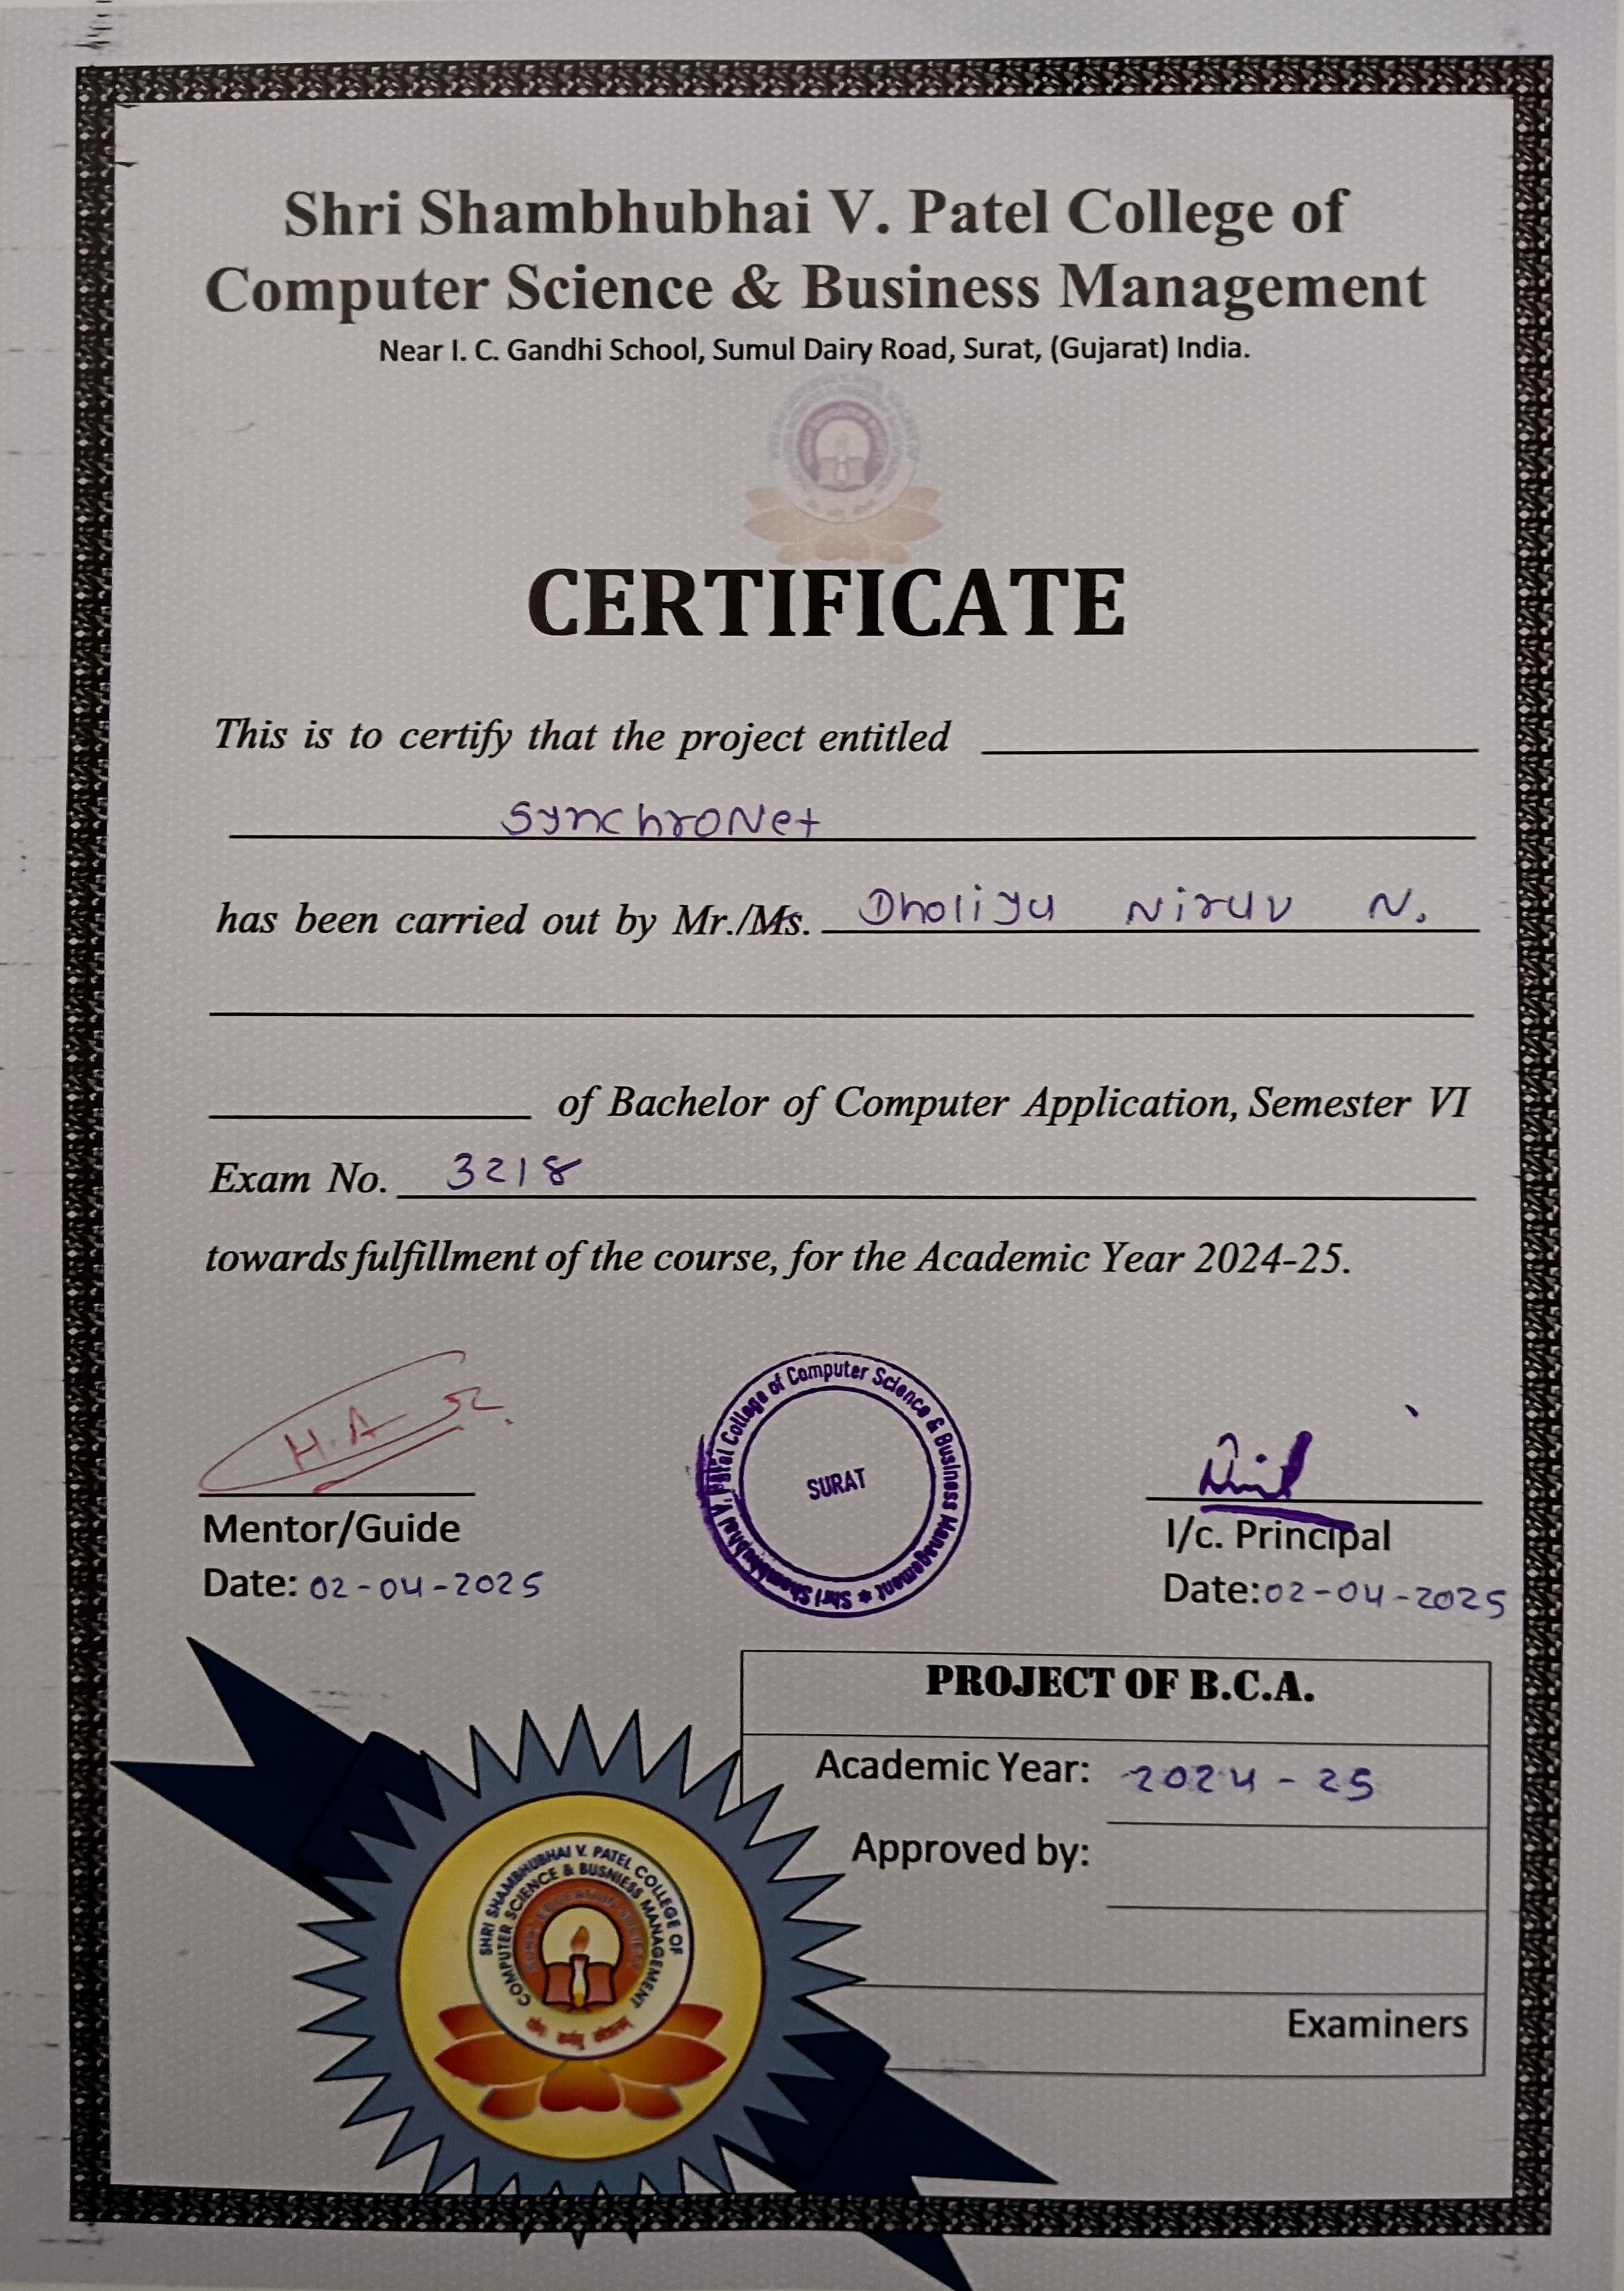 Shri Shambhubhai V. Patel College of
Computer Science & Business Management
Near I. C. Gandhi School, Sumul Dairy Road, Surat, (Gujarat) India.
CERTIFICATE
This is to certify that the project entitled
SynchroNet
has been carried out by Mr./Ms. Dholiya Nirav N.
of Bachelor of Computer Application, Semester VI
Exam No. 3218
towards fulfillment of the course, for the Academic Year 2024-25.
H.A
Shri Shambhubhai V. Patel College of Computer Science & Business Management *
SURAT
Mentor/Guide
Date: 02-04-2025
I/c. Principal
Date: 02-04-2025
PROJECT OF B.C.A.
Academic Year: 2024-25
Approved by:
Examiners
SHRI SHAMBHUBHAI V. PATEL COLLEGE OF
COMPUTER SCIENCE & BUSNIESS MANAGEMENT